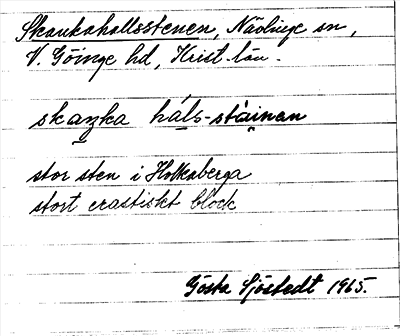 Skankahallsstenen, Nävlinge sn,
V. Göinge hd, Krist. län.
skaŋka háls-stàinen
stor sten i Holkaberga
stort erastiskt block
Gösta Sjöstedt 1965.